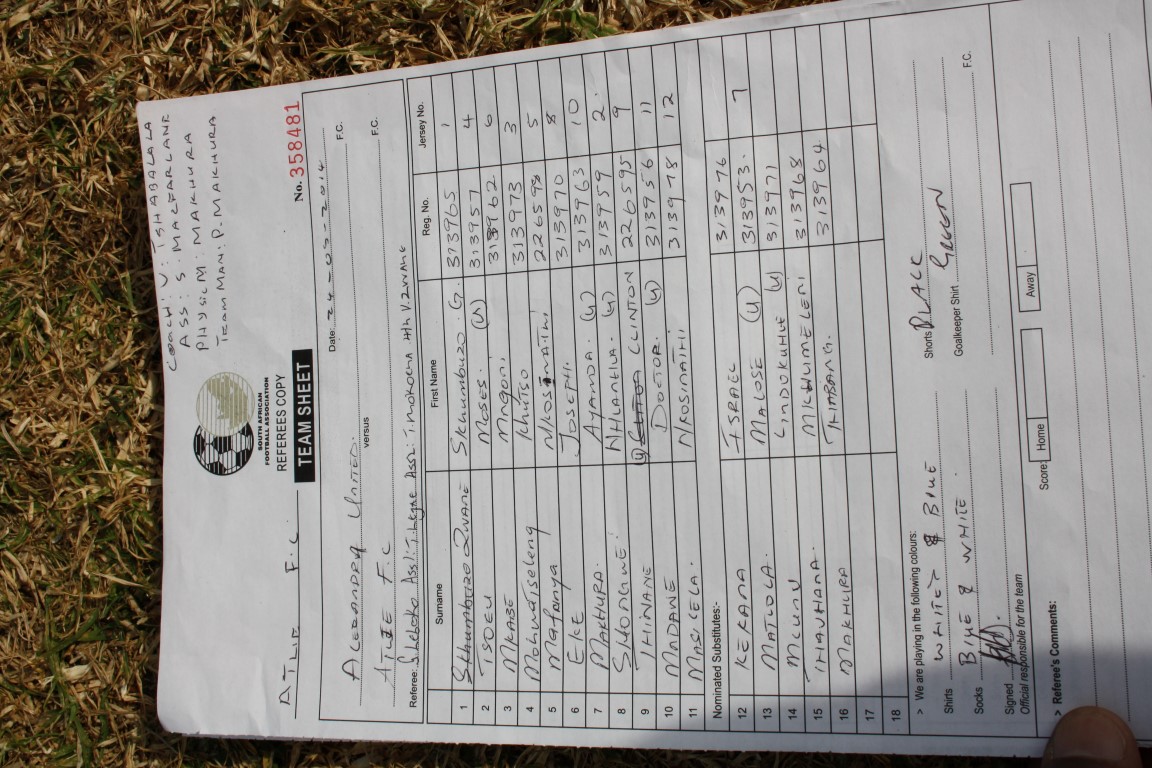 COACH: V. TSHABALALA
ASS: S. MACFARLANE
PHYSIC M. MAKHURA
TEAM MAN: P. MAKHURA
SOUTH AFRICAN
FOOTBALL ASSOCIATION
REFEREES COPY
No. 358481
F.C
TEAM SHEET
Date: 24-05-2014
ALEXANDRA UNITED. F.C.
versus
F.C F.C.
Referee: Ass1: Ass2: T. Mokoena 4th V. Zwane
Surname First Name Reg. No. Jersey No.
1 Skhumbuzo G. 313965 1
2 TSOEU MOSES. (U) 313957 4
3 MKABE Mngoni 313962 6
4 Khutso 313973 3
5 Mafanya Nkosinathi 226598 5
6 EKE JOSEPH. 313970 8
7 MAKHURA. AYANDA. (U) 313963 10
8 SHONGWE. NHLANHLA. (U) 313959 2
9 THINANE (U) CLINTON 226595 9
10 MADAWE DOCTOR. (U) 313956 11
11 MASILELA. NKOSNATHI 313978 12
Nominated Substitutes:-
12 KEKANA ISRAEL (U) 313976
13 MATLOLA. MALOSE 313953. 7
14 MCUNU LINDOKUHLE (U) 313971
15 THAVHANA. MKHUMELENI 313968
16 MAKHURA THABANG. 313964
17
18
> We are playing in the following colours:
Shirts WHITE & BLUE Shorts BLACK
Socks BLUE & WHITE. Goalkeeper Shirt GREEN
Signed F.C.
Official responsible for the team
Score: Home Away
> Referee's Comments: